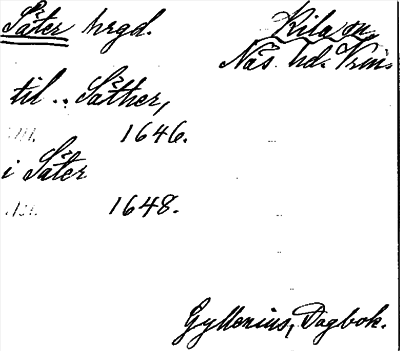 Säter hrgd. Kila sn,
Näs hd. Vrml.
til .. Säther,
1646.
i Säter
1648.
Gyllenius, Dagbok.